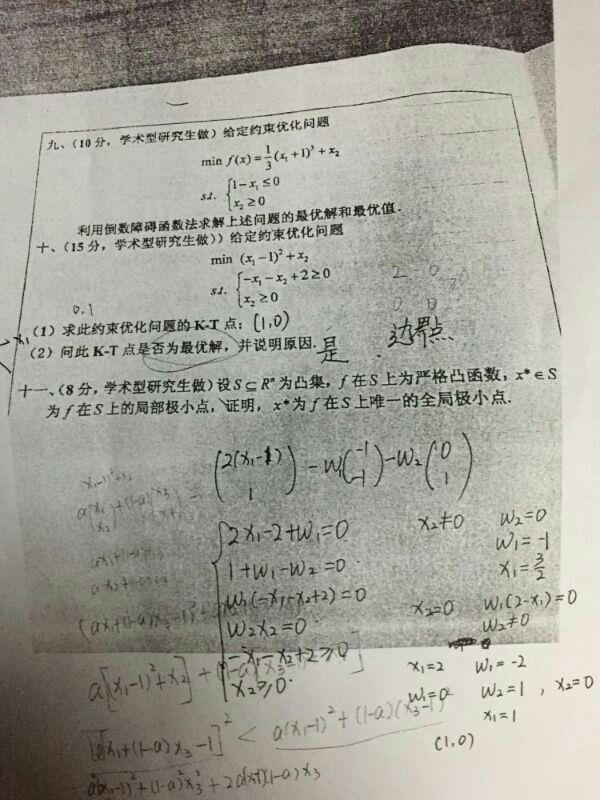 九、（10分，学术型研究生做）给定约束优化问题
min f(x) = 1/3 (x₁+1)³ + x₂
s.t. { 1-x₁≤0
x₂≥0
利用倒数障碍函数法求解上述问题的最优解和最优值.
十、（15分，学术型研究生做））给定约束优化问题
min (x₁-1)²+x₂
s.t. { -x₁-x₂+2≥0
x₂≥0
2 0
0 0
0,1
（1）求此约束优化问题的K-T点; (1,0)
（2）问此K-T点是否为最优解，并说明原因. 是 . 边界点
十一、（8分，学术型研究生做）设S⊆Rⁿ为凸集，f在S上为严格凸函数，x*∈S
为f在S上的局部极小点，证明，x*为f在S上唯一的全局极小点.
(2(x₁-1) 1) - w₁(-1 -1) - w₂(0 1)
{ 2x₁-2+w₁=0 x₂≠0 w₂=0
w₁=-1
1+w₁-w₂=0 x₁=3/2
w₁(-x₁-x₂+2)=0 x₂=0 w₁(2-x₁)=0
w₂x₂=0 w₂≠0
-x₁-x₂+2≥0 x₁=2 w₁=-2
x₂≥0 w₁=0 w₂=1 , x₂=0
x₁=1
(1,0)
a[(x₁-1)²+x₂] + (1-a)
[ax₁+(1-a)x₃-1]² < a(x₁-1)²+(1-a)(x₃-1)²